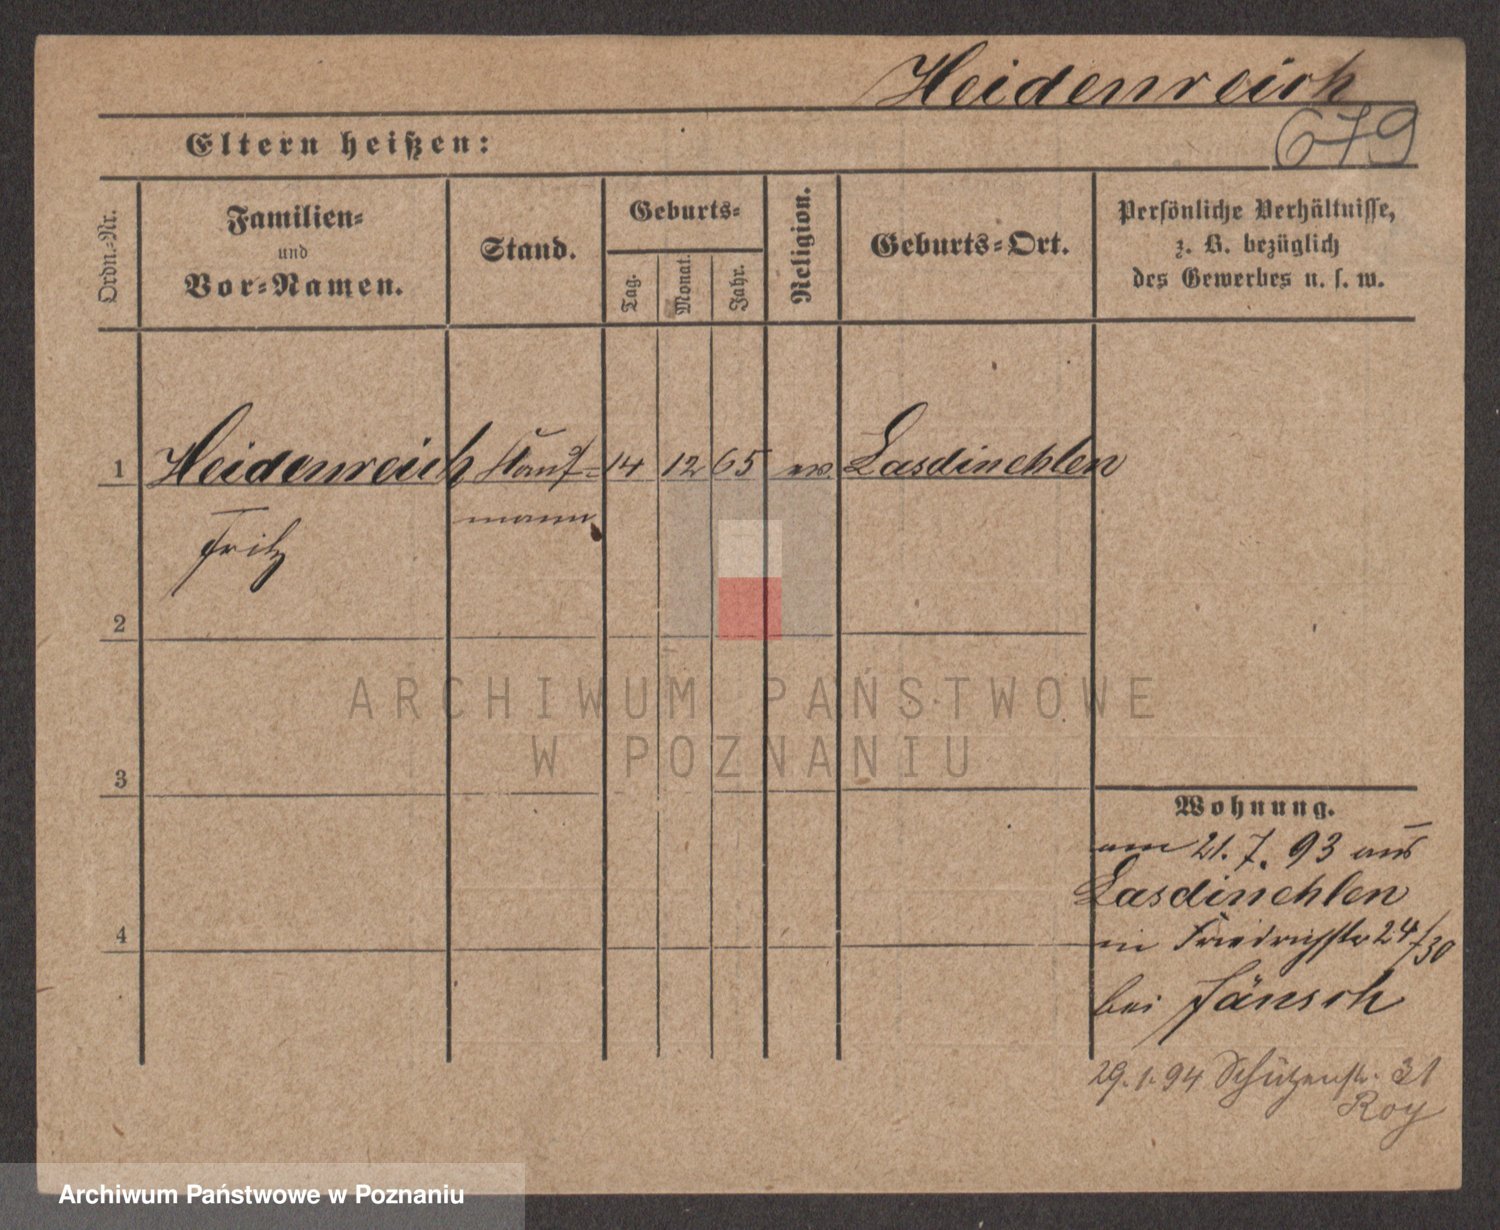 Heidenreich
679
Eltern heißen:
Ordn.-Nr.
Familien-
und
Vor-Namen.
Stand.
Geburts-
Tag.
Monat.
Jahr.
Religion.
Geburts-Ort.
Persönliche Verhältnisse,
z. B. bezüglich
des Gewerbes u. s. w.
1 Heidenreich Kauf= 14 12 65 ev. Lasdinehlen
Fritz mann
2
3
4
Wohnung.
am 21.7.93 aus
Lasdinehlen
in Friedrichstr 24/30
bei Jänsch
29.1.94 Schützenstr. 31
Roy
ARCHIWUM PAŃSTWOWE
W POZNANIU
Archiwum Państwowe w Poznaniu